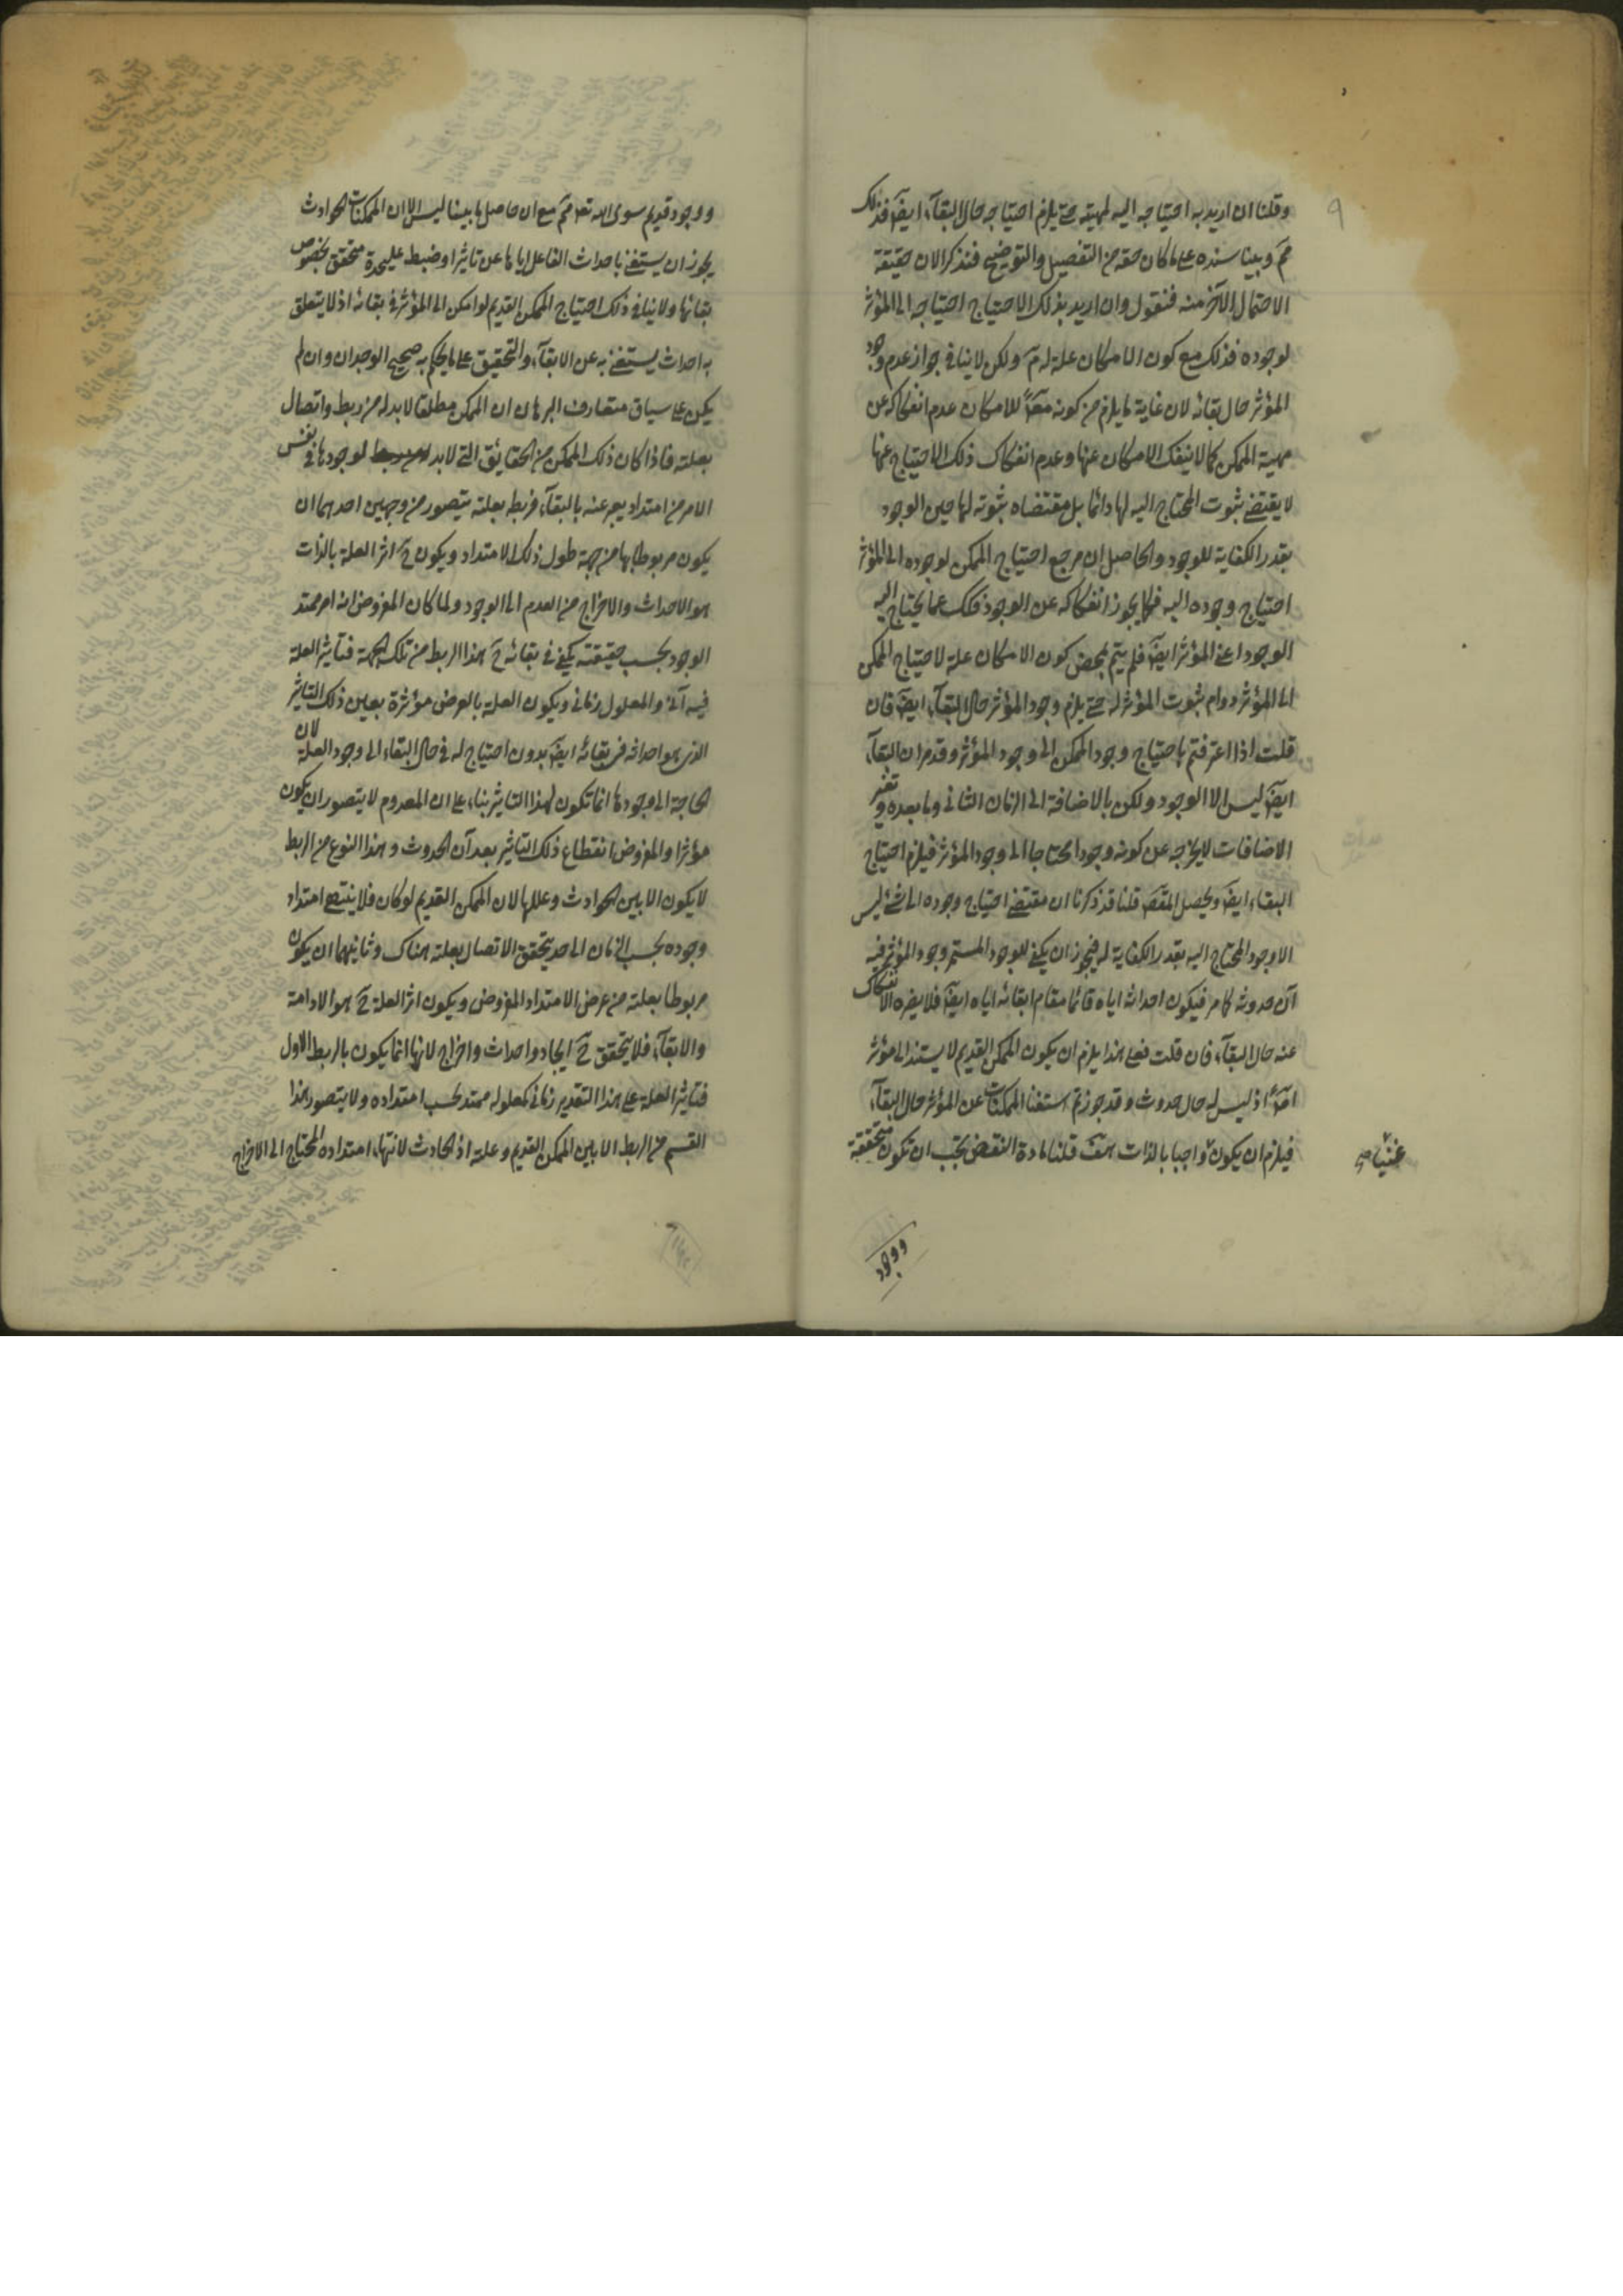 وقلنا ان اريد به احتياجه اليه لمهيته حتى يلزم احتياجه حال البقآء ايضَ فذلك
مَم وبينا سنده على ما كان حقه من التفصيل والتوضيح فنذكر الان حقيقة
الاحتمال الآخر منه فنقول وان اريد بذلك الاحتياج احتياجه الى المؤثر
لوجوده فذلك مع كون الامكان علة له مَ ولكن لا ينافي جواز عدم وجود
المؤثر حال بقائه لان غاية ما يلزم من كونه للامكان عدم انفكاكه عن
مهية الممكن كما لا ينفك الامكان عنها وعدم انفكاك ذلك الاحتياج عنها
لا يقتضي ثبوت المحتاج اليه لها دائما بل مقتضاه ثبوته لها حين الوجود
بقدر الكفاية للوجود والحاصل ان مرجع احتياج الممكن لوجوده الى المؤثر
احتياج وجوده اليه فكما يجوز انفكاكه عن الوجود فكك عما يحتاج اليه
الوجود اعني المؤثر ايضَ فلم يتم بمحض كون الامكان علة لاحتياج الممكن
الى المؤثر دوام ثبوت المؤثر له حتى يلزم وجود المؤثر حال البقآء ايضَ فان
قلت اذا اعترفتم باحتياج وجود الممكن الى وجود المؤثر وقد مر ان البقآء
ايضَ ليس الا الوجود ولكن بالاضافة الى الزمان الثاني وما بعده وتغير
الاضافات لا يخرجه عن كونه وجودا محتاجا الى وجود المؤثر فيلزم احتياج
البقاء ايضَ ويحصل المقصَ قلنا قد ذكرنا ان مقتضى احتياج وجوده الى شئ ليس
الا وجود المحتاج اليه بقدر الكفاية له فيجوز ان يكفي للوجود المستمر وجود المؤثر فيه
آن حدوثه كما مر فيكون احداثه اياه قائما مقام ابقائه اياه ايضَ فلا يضره الانفكاك
عنه حال البقآء فان قلت فعلى هذا يلزم ان يكون الممكن القديم لا يستند الى مؤثر
اصَلا اذ ليس له حال حدوث وقد جوزتم استغنا الممكنات عن المؤثر حال البقآء
فيلزم ان يكون واجبا بالذات هف قلنا مادة النقض يجب ان تكون متحققة
غنيا
ووجود
ووجود قديم سوى الله تعَ مَم مع ان حاصل ما بينا ليس الا ان الممكنات الحوادث
يجوز ان يستغني باحداث الفاعل اياها عن تاثير اوضبط عليحدة متحقق بخصوص
بقائها ولا ينافي ذلك احتياج الممكن القديم لو امكن الى المؤثر في بقائه اذ لا يتعلق
به احداث يستغني به عن الابقآء والتحقيق على ما يحكم به صحيح الوجدان وان لم
يكن على سياق متعارف البرهان ان الممكن مطلقا لابد له من ربط واتصال
بعلته فاذا كان ذلك الممكن من الحقايق التي لابد لوجودها في نفس
الامر من امتداد يعبر عنه بالبقآء فربط بعلته يتصور من وجهين احدهما ان
يكون مربوطا بها من جهة طول ذلك الامتداد ويكون حَ اثر العلة بالذات
هو الاحداث والاخراج من العدم الى الوجود ولما كان المفروض انه امر ممتد
الوجود بحسب حقيقته يكفي في بقائه حَ هذا الربط من تلك الجهة فتاثير العلة
فيه آني والمعلول زماني ويكون العلة بالعرض مؤثرة بعين ذلك التاثير
الذي هو احداثه في بقائه ايضَ بدون احتياج له في حال البقاء الى وجود العلة لان
الحاجة الى وجودها انما تكون لهذا التاثير بناء على ان المعدوم لا يتصور ان يكون
مؤثرا والمفروض انقطاع ذلك التاثير بعد آن الحدوث وهذا النوع من الربط
لا يكون الا بين الحوادث وعللها لان الممكن القديم لو كان فلا ينتهي امتداد
وجوده بحسب الزمان الى حد يتحقق الاتصال بعلته هناك وثانيهما ان يكون
مربوطا بعلته من عرض الامتداد المفروض ويكون اثر العلة حَ هو الادامة
والابقآء فلا يتحقق حَ ايجاد واحداث واخراج لانها انما يكون بالربط الاول
فتاثير العلة على هذا التقدير زماني كمعلوله ممتد بحسب امتداده ولا يتصور هذا
القسم من الربط الا بين الممكن القديم وعلته اذ الحادث لانتهاء امتداده المحتاج الى الاخراج